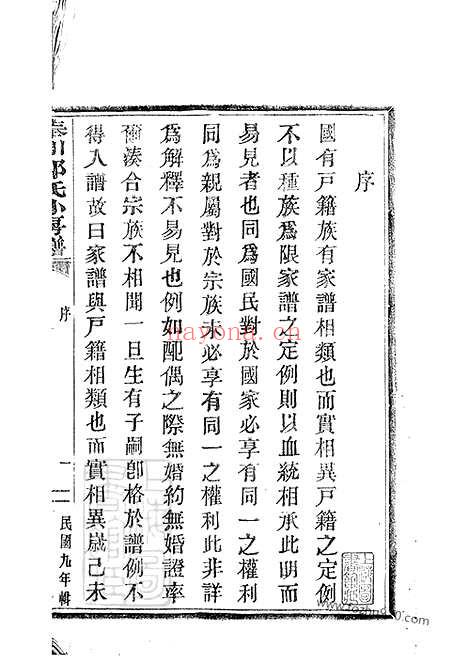 序
國有戸籍族有家譜相類也而實相異戸籍之定例
不以種族爲限家譜之定例則以血統相承此明而
易見者也同爲國民對於國家必享有同一之權利
同爲親屬對於宗族亦必享有同一之權利此非詳
爲解釋不易見也例如配偶之際無婚約無婚證率
爾湊合宗族不相聞一旦生有子嗣卽格於譜例不
得入譜故曰家譜與戸籍相類也而實相異歲己未
氏小宗譜
序
一
民國九年輯
hayona.cn